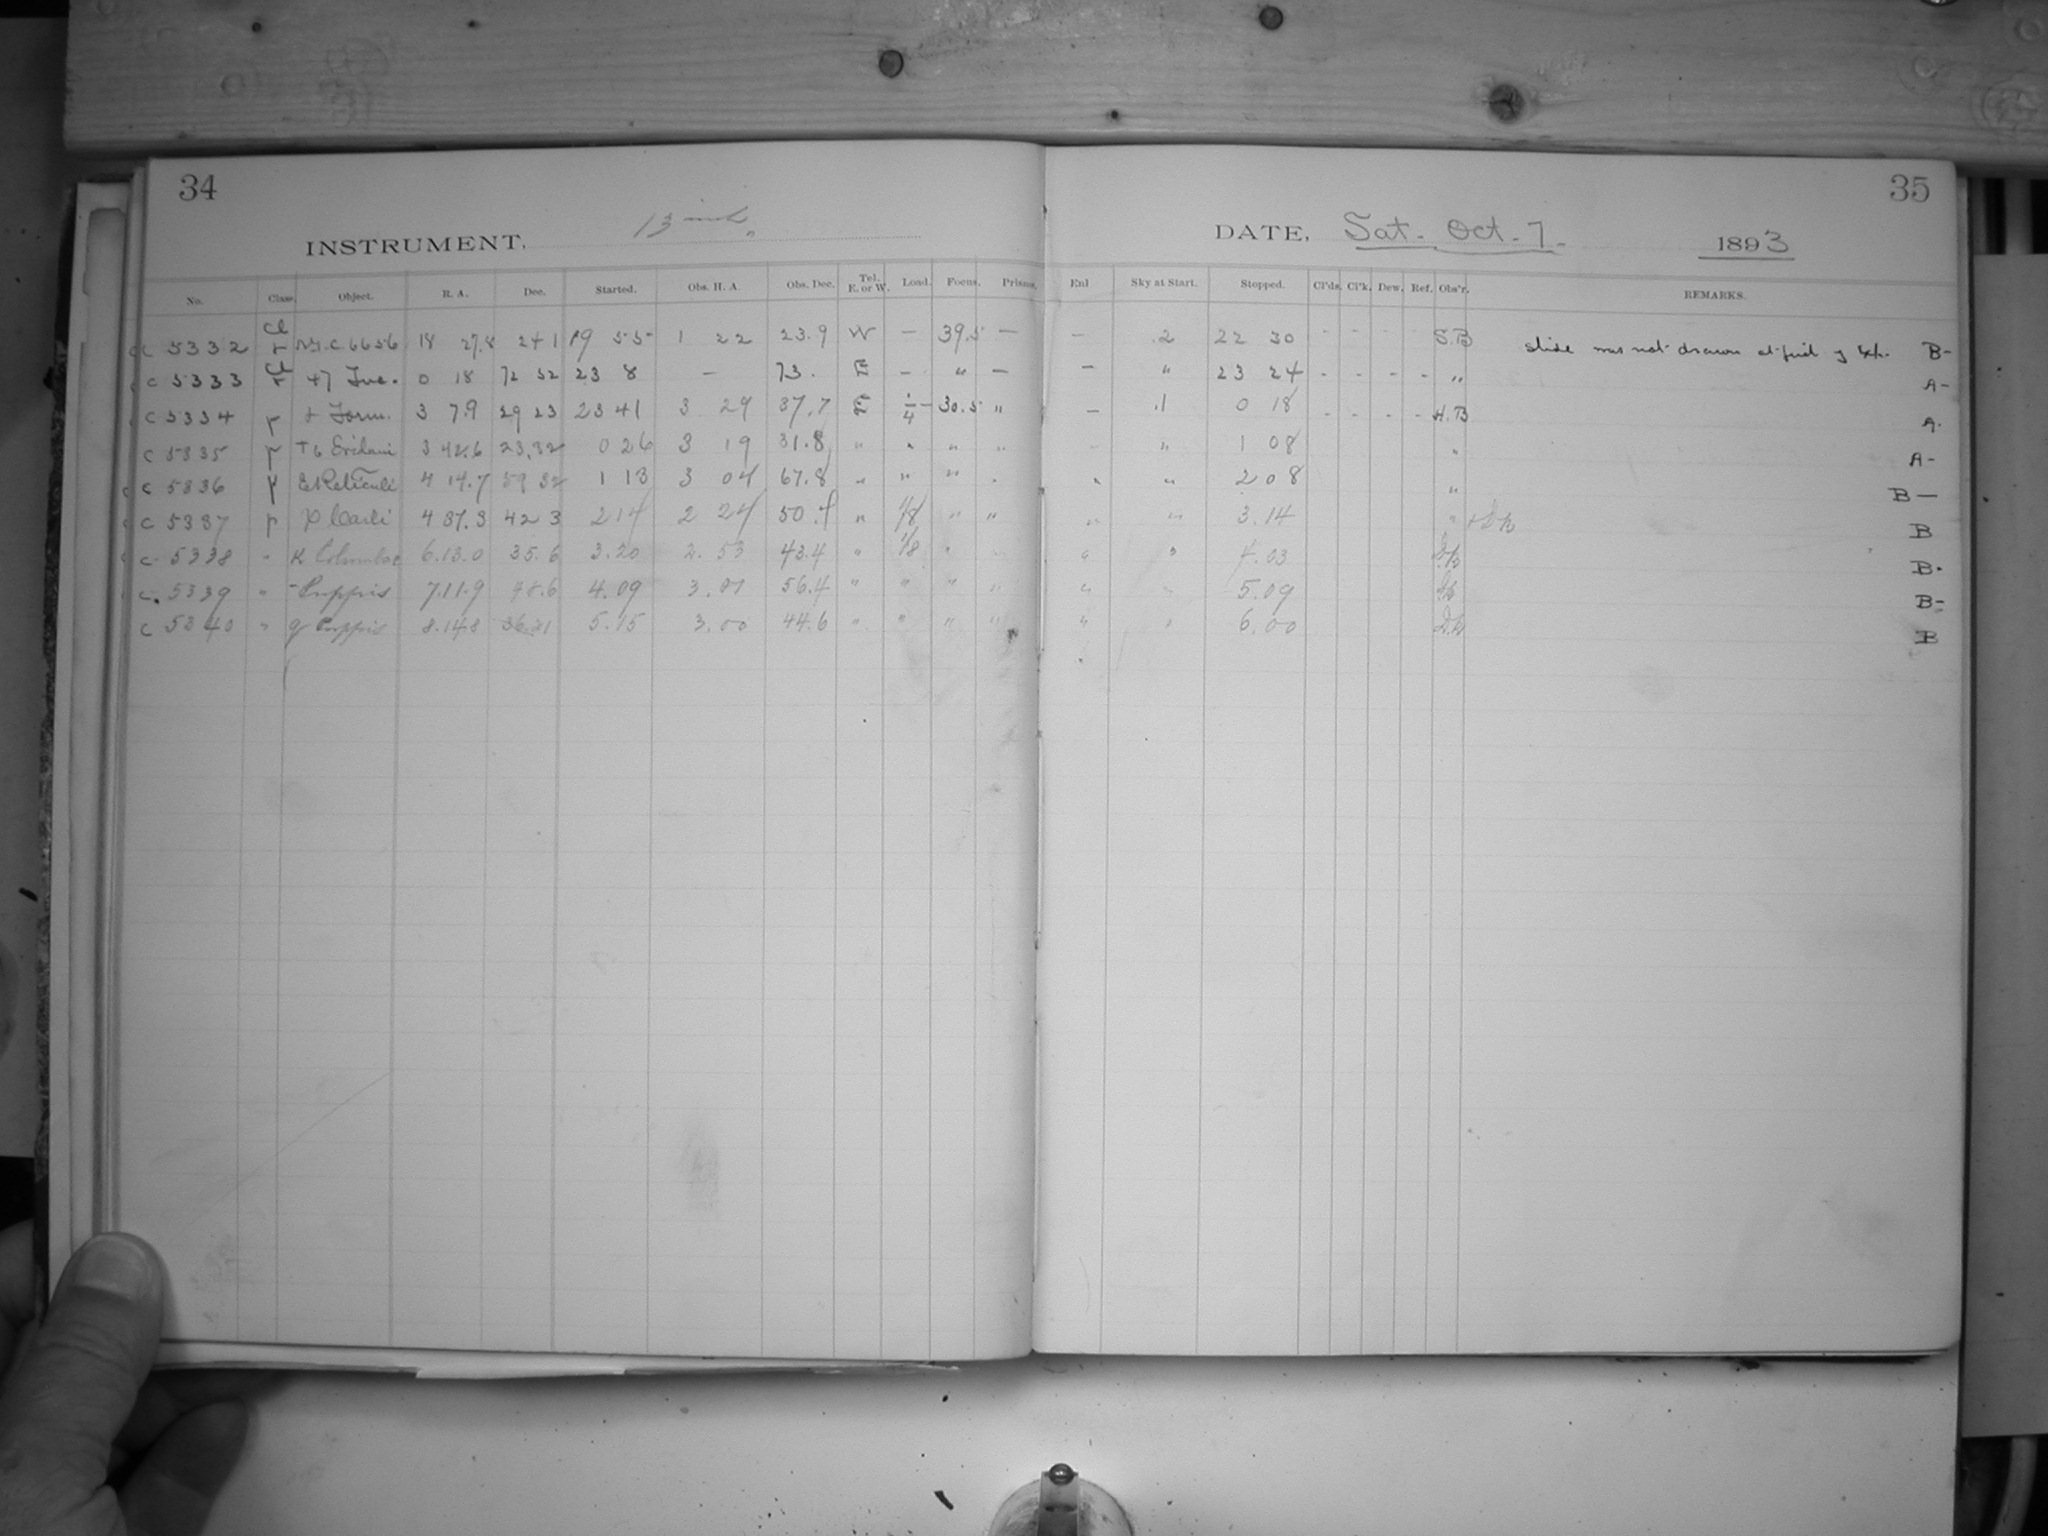 34
35
INSTRUMENT, 13 inch
DATE, Sat. Oct. 7. 1893
No. Class. Object. R. A. Dec. Started. Obs. H. A. Obs. Dec. Tel. E. or W. Load. Focus. Prisms. Enl Sky at Start. Stopped. Cl'ds. Cl'k. Dew. Ref. Obs'r. REMARKS.
C 5332 Cl N.G.C 6656 18 27.8 24 1 19 55 1 22 23.9 W — 39.5 — — .2 22 30 S.B slide was not drawn at of Exp. B-
C 5333 Cl 47 Tuc. 0 18 72 52 23 8 — 73. E — " — — " 23 24 - - - - " A-
C 5334 r Forn. 3 7.9 29 23 23 41 3 29 37.7 E 1/4 30.5 " — .1 0 18 - - - - H.B A-
C 5335 r T6 Eridani 3 42.6 23.32 0 26 3 19 31.8 " " " " " 1 08 " A-
C 5336 r Reticuli 4 14.7 59 32 1 13 3 04 67.8 " " " " " " 2 08 " B—
C 5337 r Caeli 4 37.3 42 3 2 14 2 24 50.4 " 1/8 " " " " 3.14 " B
C 5338 " K Columbae 6.13.0 35.6 3.20 2.53 43.4 " 1/8 " " " 4.03 B-
C 5339 " Puppis 7.11.9 48.6 4.09 3.01 56.4 " " " " " 5.09 B-
C 5340 " q Puppis 8.14.8 36.21 5.15 3.00 44.6 " " " " " " 6.00 B